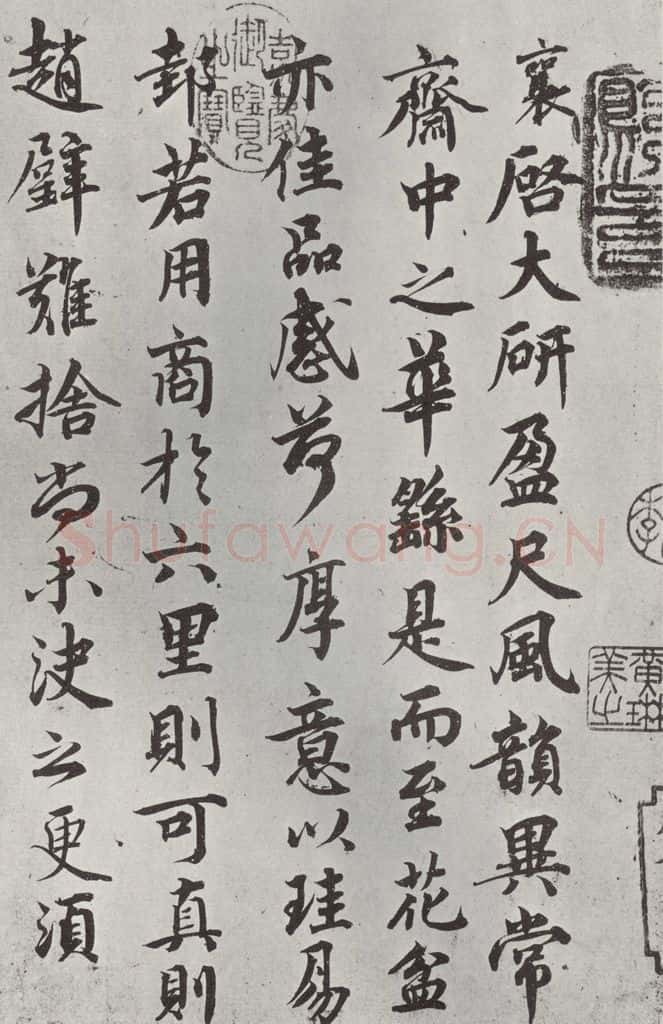 襄啓大研盈尺風韻異常
齋中之華繇是而至花盆
亦佳品感荷厚意以珪易
邽若用商於六里則可真則
趙璧難捨尚未決之更須
嘉慶御覽之寶
黄琳美之
Shufawang.CN